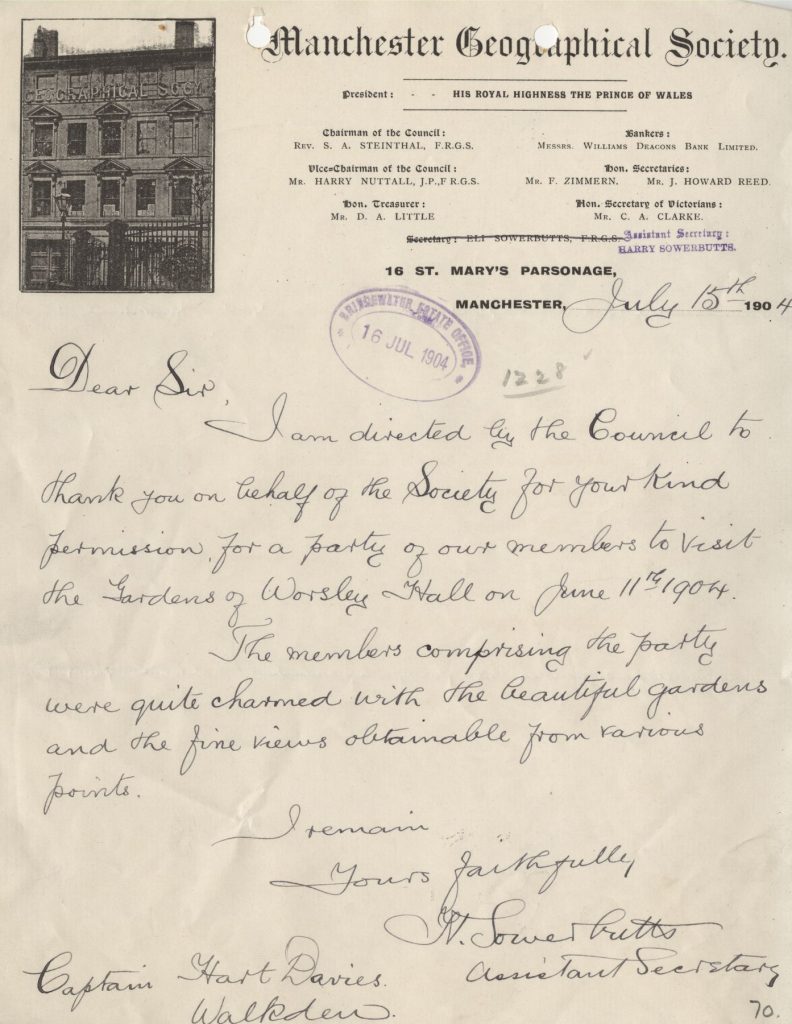 GEOGRAPHICAL SOCY
Manchester Geographical Society.
President: - - HIS ROYAL HIGHNESS THE PRINCE OF WALES
Chairman of the Council:
REV. S. A. STEINTHAL, F.R.G.S.
Bankers:
MESSRS. WILLIAMS DEACONS BANK LIMITED.
Vice-Chairman of the Council:
MR. HARRY NUTTALL, J.P., F R.G.S.
Hon. Secretaries:
MR. F. ZIMMERN. MR. J. HOWARD REED.
Hon. Treasurer:
MR. D. A. LITTLE
Hon. Secretary of Victorians:
MR. C. A. CLARKE.
Secretary: ELI SOWERBUTTS, F.R.G.S.
Assistant Secretary:
HARRY SOWERBUTTS.
16 ST. MARY'S PARSONAGE,
MANCHESTER, July 15th 1904
BRIDGEWATER ESTATE OFFICE,
16 JUL 1904
1228
Dear Sir,
I am directed by the Council to
thank you on behalf of the Society for your kind
permission, for a party of our members to visit
the Gardens of Worsley Hall on June 11th 1904.
The members comprising the party
were quite charmed with the beautiful gardens
and the fine views obtainable from various
points.
I remain
Yours faithfully
H. Sowerbutts
Assistant Secretary
Captain Hart Davies.
Walkden.
70.